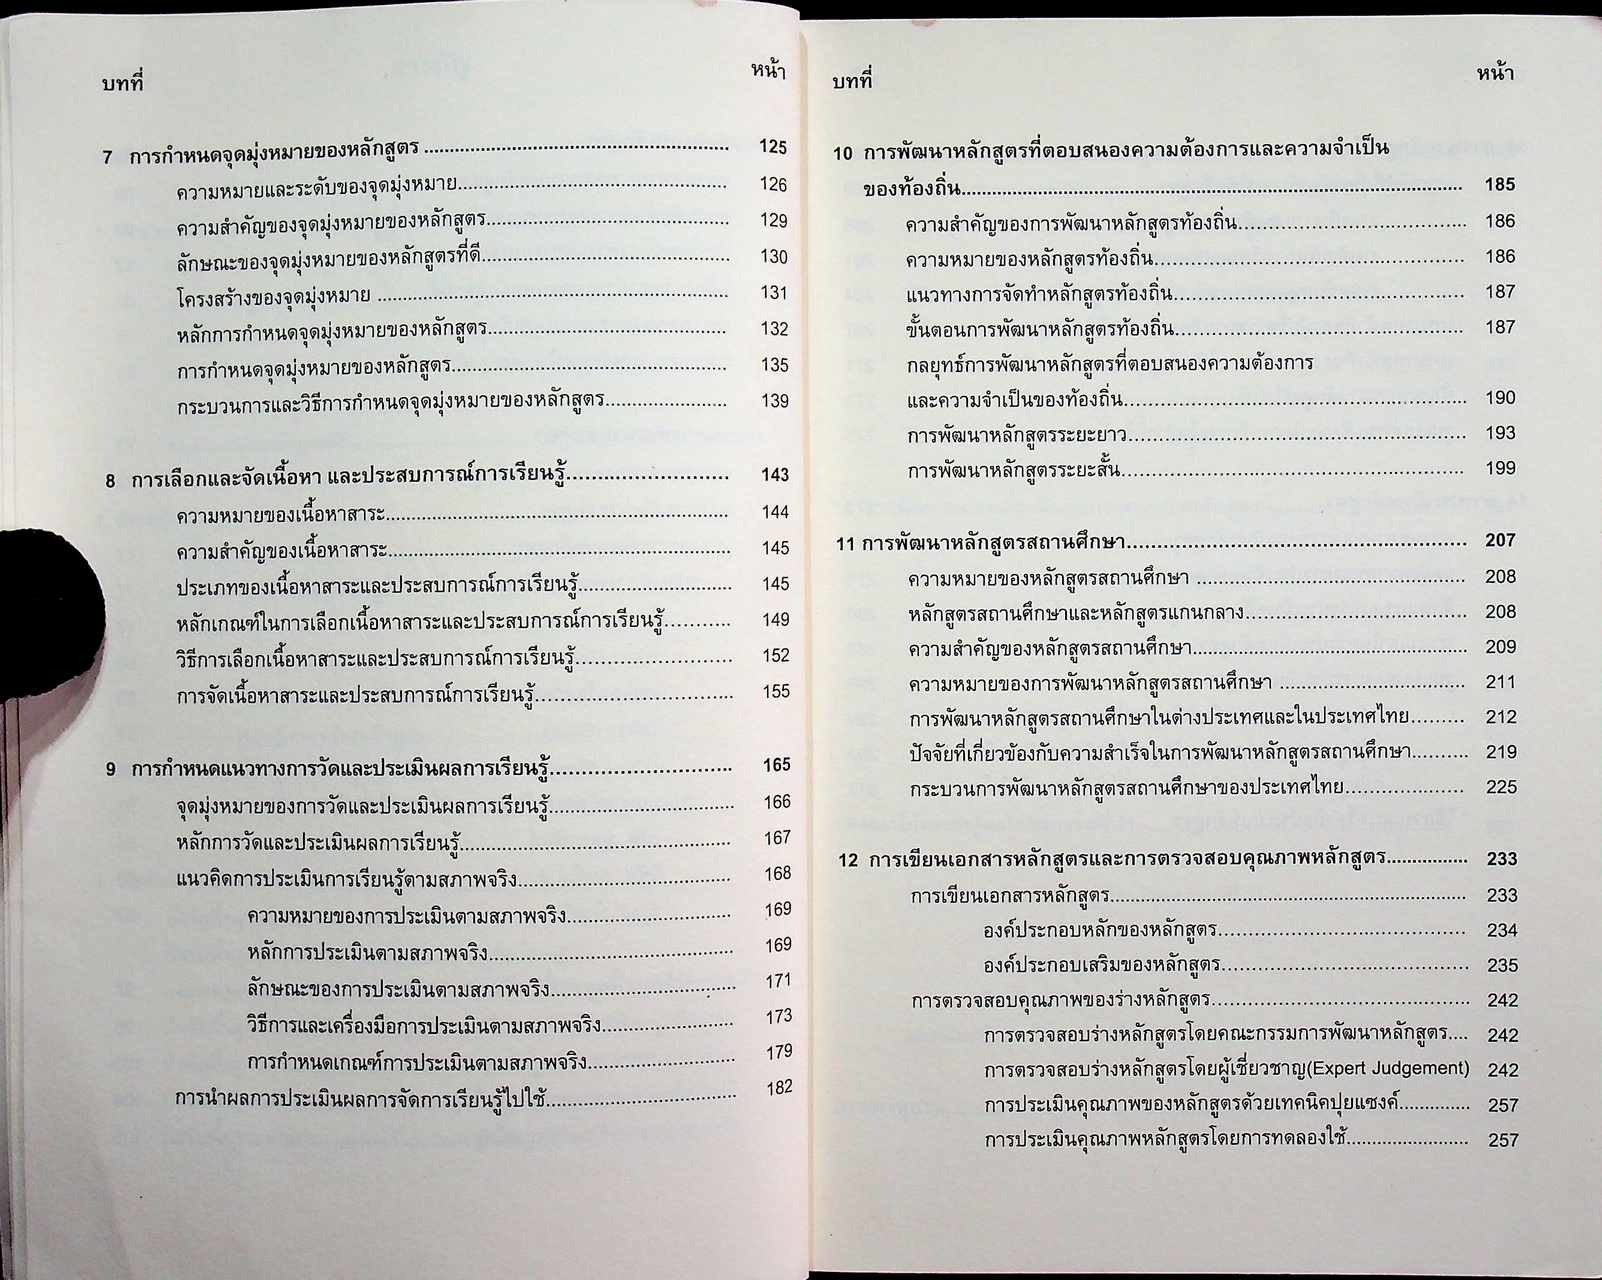 บทที่ หน้า
7 การกำหนดจุดมุ่งหมายของหลักสูตร 125
ความหมายและระดับของจุดมุ่งหมาย 126
ความสำคัญของจุดมุ่งหมายของหลักสูตร 129
ลักษณะของจุดมุ่งหมายของหลักสูตรที่ดี 130
โครงสร้างของจุดมุ่งหมาย 131
หลักการกำหนดจุดมุ่งหมายของหลักสูตร 132
การกำหนดจุดมุ่งหมายของหลักสูตร 135
กระบวนการและวิธีการกำหนดจุดมุ่งหมายของหลักสูตร 139
8 การเลือกและจัดเนื้อหา และประสบการณ์การเรียนรู้ 143
ความหมายของเนื้อหาสาระ 144
ความสำคัญของเนื้อหาสาระ 145
ประเภทของเนื้อหาสาระและประสบการณ์การเรียนรู้ 145
หลักเกณฑ์ในการเลือกเนื้อหาสาระและประสบการณ์การเรียนรู้ 149
วิธีการเลือกเนื้อหาสาระและประสบการณ์การเรียนรู้ 152
การจัดเนื้อหาสาระและประสบการณ์การเรียนรู้ 155
9 การกำหนดแนวทางการวัดและประเมินผลการเรียนรู้ 165
จุดมุ่งหมายของการวัดและประเมินผลการเรียนรู้ 166
หลักการวัดและประเมินผลการเรียนรู้ 167
แนวคิดการประเมินการเรียนรู้ตามสภาพจริง 168
ความหมายของการประเมินตามสภาพจริง 169
หลักการประเมินตามสภาพจริง 169
ลักษณะของการประเมินตามสภาพจริง 171
วิธีการและเครื่องมือการประเมินตามสภาพจริง 173
การกำหนดเกณฑ์การประเมินตามสภาพจริง 179
การนำผลการประเมินผลการจัดการเรียนรู้ไปใช้ 182
บทที่ หน้า
10 การพัฒนาหลักสูตรที่ตอบสนองความต้องการและความจำเป็น
ของท้องถิ่น 185
ความสำคัญของการพัฒนาหลักสูตรท้องถิ่น 186
ความหมายของหลักสูตรท้องถิ่น 186
แนวทางการจัดทำหลักสูตรท้องถิ่น 187
ขั้นตอนการพัฒนาหลักสูตรท้องถิ่น 187
กลยุทธ์การพัฒนาหลักสูตรที่ตอบสนองความต้องการ
และความจำเป็นของท้องถิ่น 190
การพัฒนาหลักสูตรระยะยาว 193
การพัฒนาหลักสูตรระยะสั้น 199
11 การพัฒนาหลักสูตรสถานศึกษา 207
ความหมายของหลักสูตรสถานศึกษา 208
หลักสูตรสถานศึกษาและหลักสูตรแกนกลาง 208
ความสำคัญของหลักสูตรสถานศึกษา 209
ความหมายของการพัฒนาหลักสูตรสถานศึกษา 211
การพัฒนาหลักสูตรสถานศึกษาในต่างประเทศและในประเทศไทย 212
ปัจจัยที่เกี่ยวข้องกับความสำเร็จในการพัฒนาหลักสูตรสถานศึกษา 219
กระบวนการพัฒนาหลักสูตรสถานศึกษาของประเทศไทย 225
12 การเขียนเอกสารหลักสูตรและการตรวจสอบคุณภาพหลักสูตร 233
การเขียนเอกสารหลักสูตร 233
องค์ประกอบหลักของหลักสูตร 234
องค์ประกอบเสริมของหลักสูตร 235
การตรวจสอบคุณภาพของร่างหลักสูตร 242
การตรวจสอบร่างหลักสูตรโดยคณะกรรมการพัฒนาหลักสูตร 242
การตรวจสอบร่างหลักสูตรโดยผู้เชี่ยวชาญ(Expert Judgement) 242
การประเมินคุณภาพของหลักสูตรด้วยเทคนิคปุยแซงค์ 257
การประเมินคุณภาพหลักสูตรโดยการทดลองใช้ 257